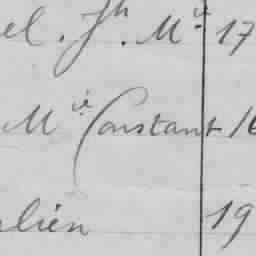 el. Jh. Mie 17
Mie Constant 16
lien 19